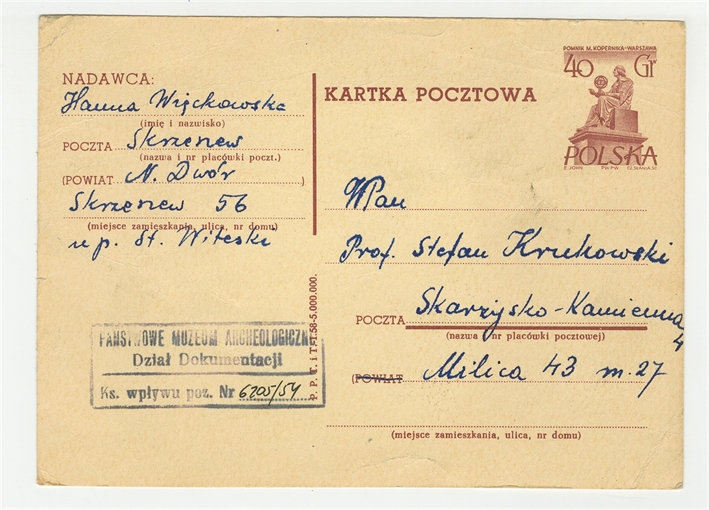 NADAWCA:
Hanna Więckowska
(imię i nazwisko)
POCZTA Skrzeszew
(nazwa i nr placówki poczt.)
(POWIAT N. Dwór )
Skrzeszew 56
(miejsce zamieszkania, ulica, nr domu)
u p. St. Witeski
KARTKA POCZTOWA
POMNIK M. KOPERNIKA-WARSZAWA
40 Gr
POLSKA
PWPW
WPan
Prof. Stefan Krukowski
Skarżysko-Kamienna
4
POCZTA
(nazwa i nr placówki pocztowej)
(POWIAT Milica 43 m. 27
(miejsce zamieszkania, ulica, nr domu)
P. P. T. i T.-I.58-5.000.000.
PAŃSTWOWE MUZEUM ARCHEOLOGICZNE
Dział Dokumentacji
Ks. wpływu poz. Nr 6205/59